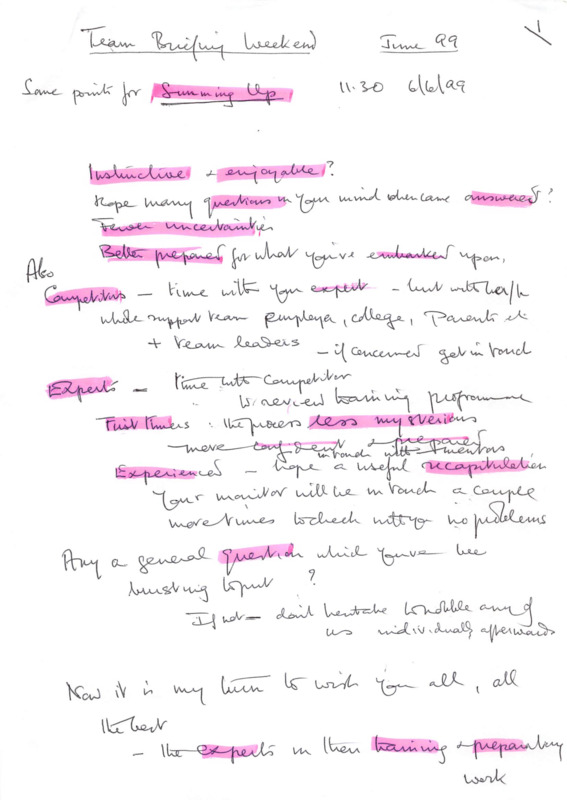 1
Team Briefing Weekend June 99
Some points for Summing Up 11.30 6/6/99
Instructive + enjoyable?
Hope many questions in your mind when came answered?
Fewer uncertainties
Better prepared for what you've embarked upon,
Also
Competitors – time with your expert – but with her/h
whole support team employer, college, Parents etc
+ team leaders – if concerned get in touch
Experts – time with Competitor
to review training programme
First timers : the process less mysterious
– more confident + prepared
in touch with mentors
Experienced – hope a useful recapitulation
Your monitor will be in touch a couple
more times to check with you no problems
Any a general question which you've bee
bursting to put ?
If not – don't hesitate to nobble any of
us individually afterwards
Now it is my turn to wish you all, all
the best
– the experts in their training + preparatory
work